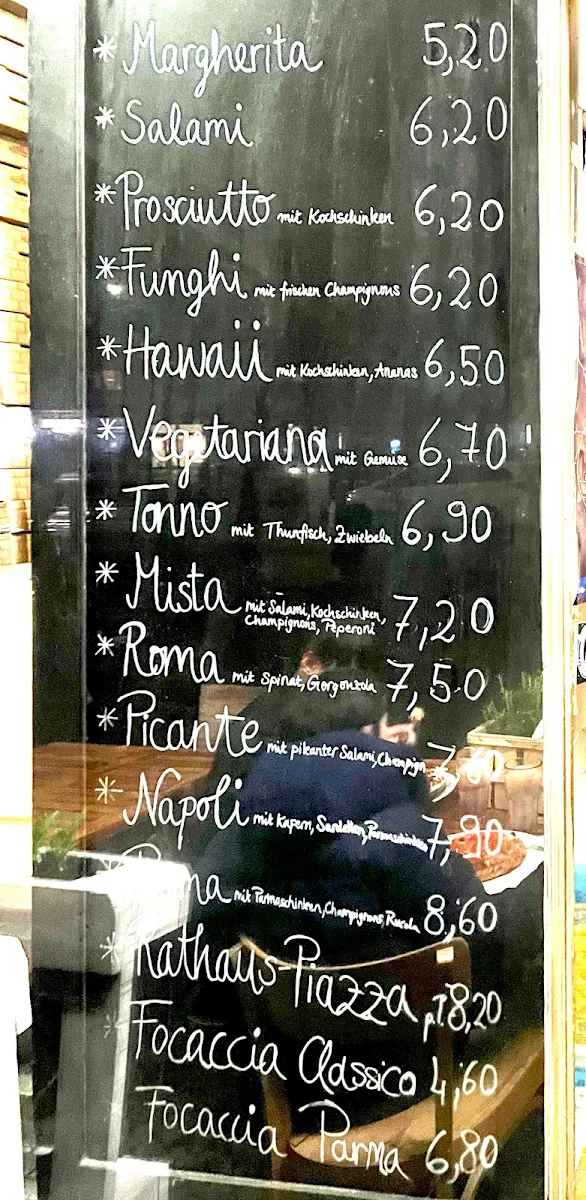 * Margherita 5,20
* Salami 6,20
* Prosciutto mit Kochschinken 6,20
* Funghi mit frischen Champignons 6,20
* Hawaii mit Kochschinken, Ananas 6,50
* Vegetariana mit Gemüse 6,70
* Tonno mit Thunfisch, Zwiebeln 6,90
* Mista mit Salami, Kochschinken, 7,20
Champignons, Peperoni
* Roma mit Spinat, Gorgonzola 7,50
* Picante mit pikanter Salami, Champign 7,60
* Napoli mit Kapern, Sardellen, Parmaschinken 7,90
* Parma mit Parmaschinken, Champignons, Rucola 8,60
* Rathaus-Piazza p.P. 8,20
* Focaccia Classico 4,60
Focaccia Parma 6,80